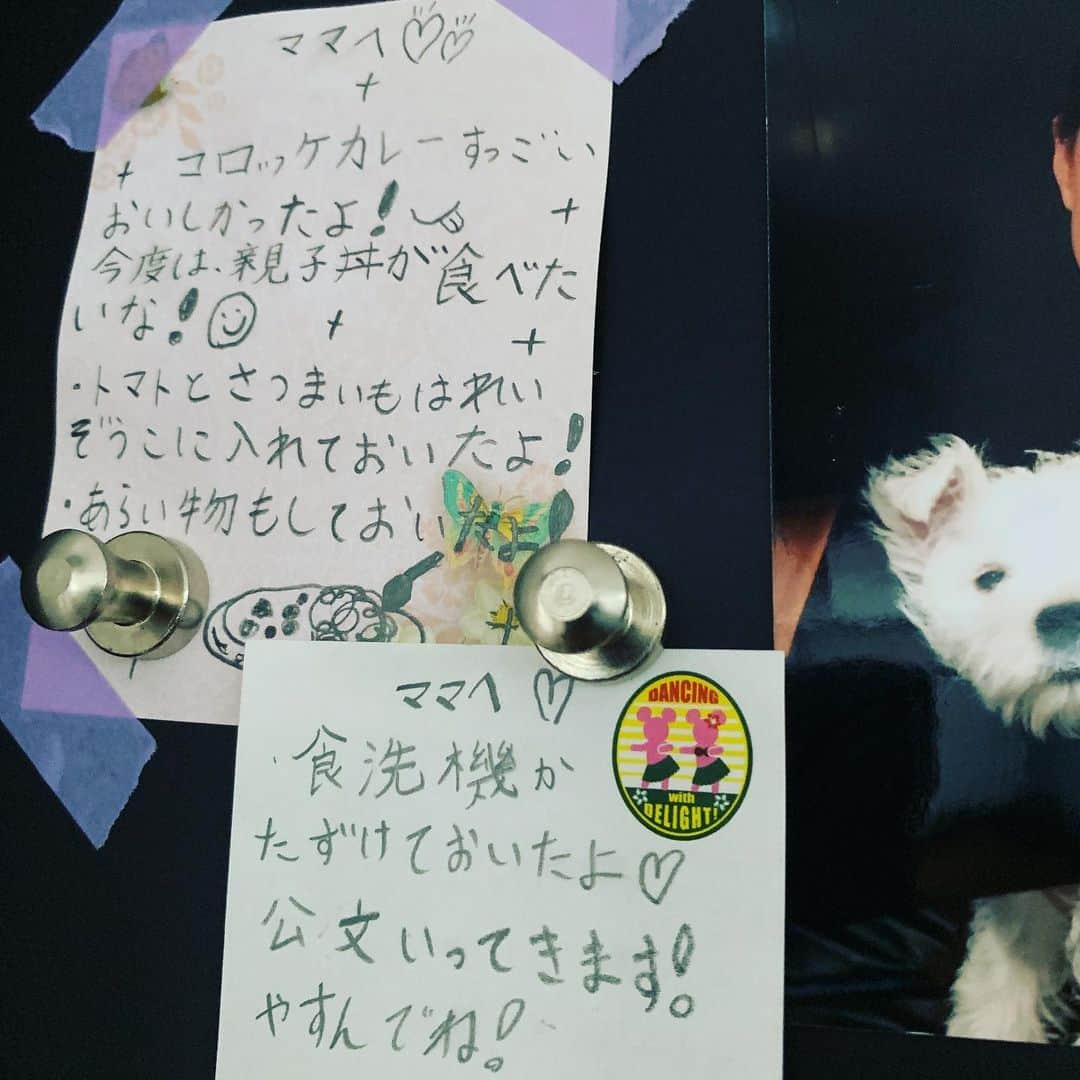 ママへ
コロッケカレーすっごい
おいしかったよ!
今度は、親子丼が食べた
いな!
・トマトとさつまいもはれい
ぞうこに入れておいたよ!
・あらい物もしておいたよ!
ママへ
食洗機か
たずけておいたよ
公文いってきます!
やすんでね!
DANCING
with
DELIGHT!